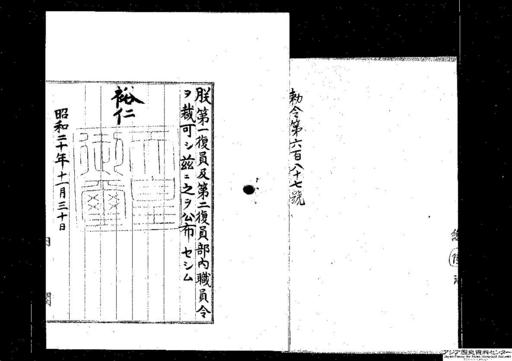 勅令第六百八十七號
朕第一復員及第二復員部內職員令
ヲ裁可シ茲ニ之ヲ公布セシム
裕仁
天皇御璽
昭和二十年十一月三十日
內閣
アジア歴史資料センター